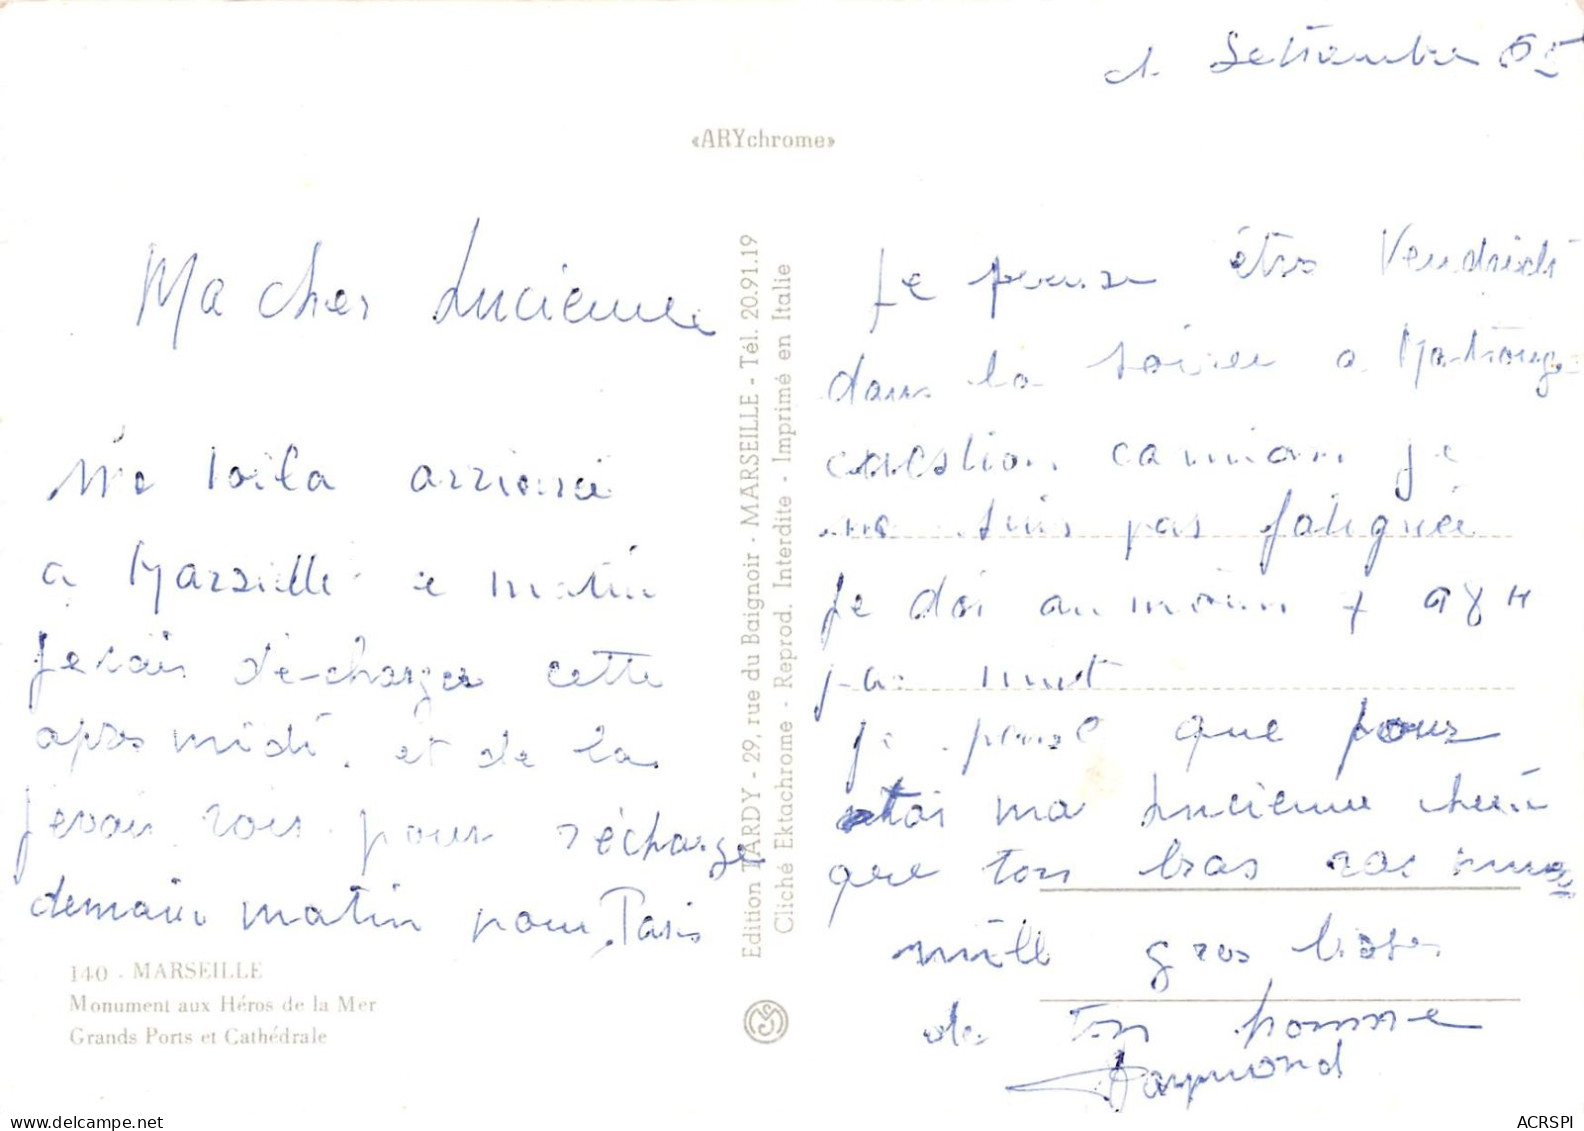 Settembre 65
«ARYchrome»
Ma cher Lucienne
Me Voila arrivée
a Marseille ce matin
Je vais décharger cette
apres midi. et de la
je vais pour récharge
demain matin pour Paris
140 - MARSEILLE
Monument aux Héros de la Mer
Grands Ports et Cathédrale
Edition TARDY - 29, rue du Baignoir - MARSEILLE - Tél. 20.91.19
Cliché Ektachrome - Reprod. Interdite - Imprimé en Italie
Je pense étre Vendredi
dans la soirée a Montrouge
caestion camion je
ne suis pas fatiguée
Je doi au moin 7 a 8 H
par nuit
je pense que pour
toi ma Lucienne cherie
que ton bras
mille gros bises
de ton homme
Raymond
ACRSPI